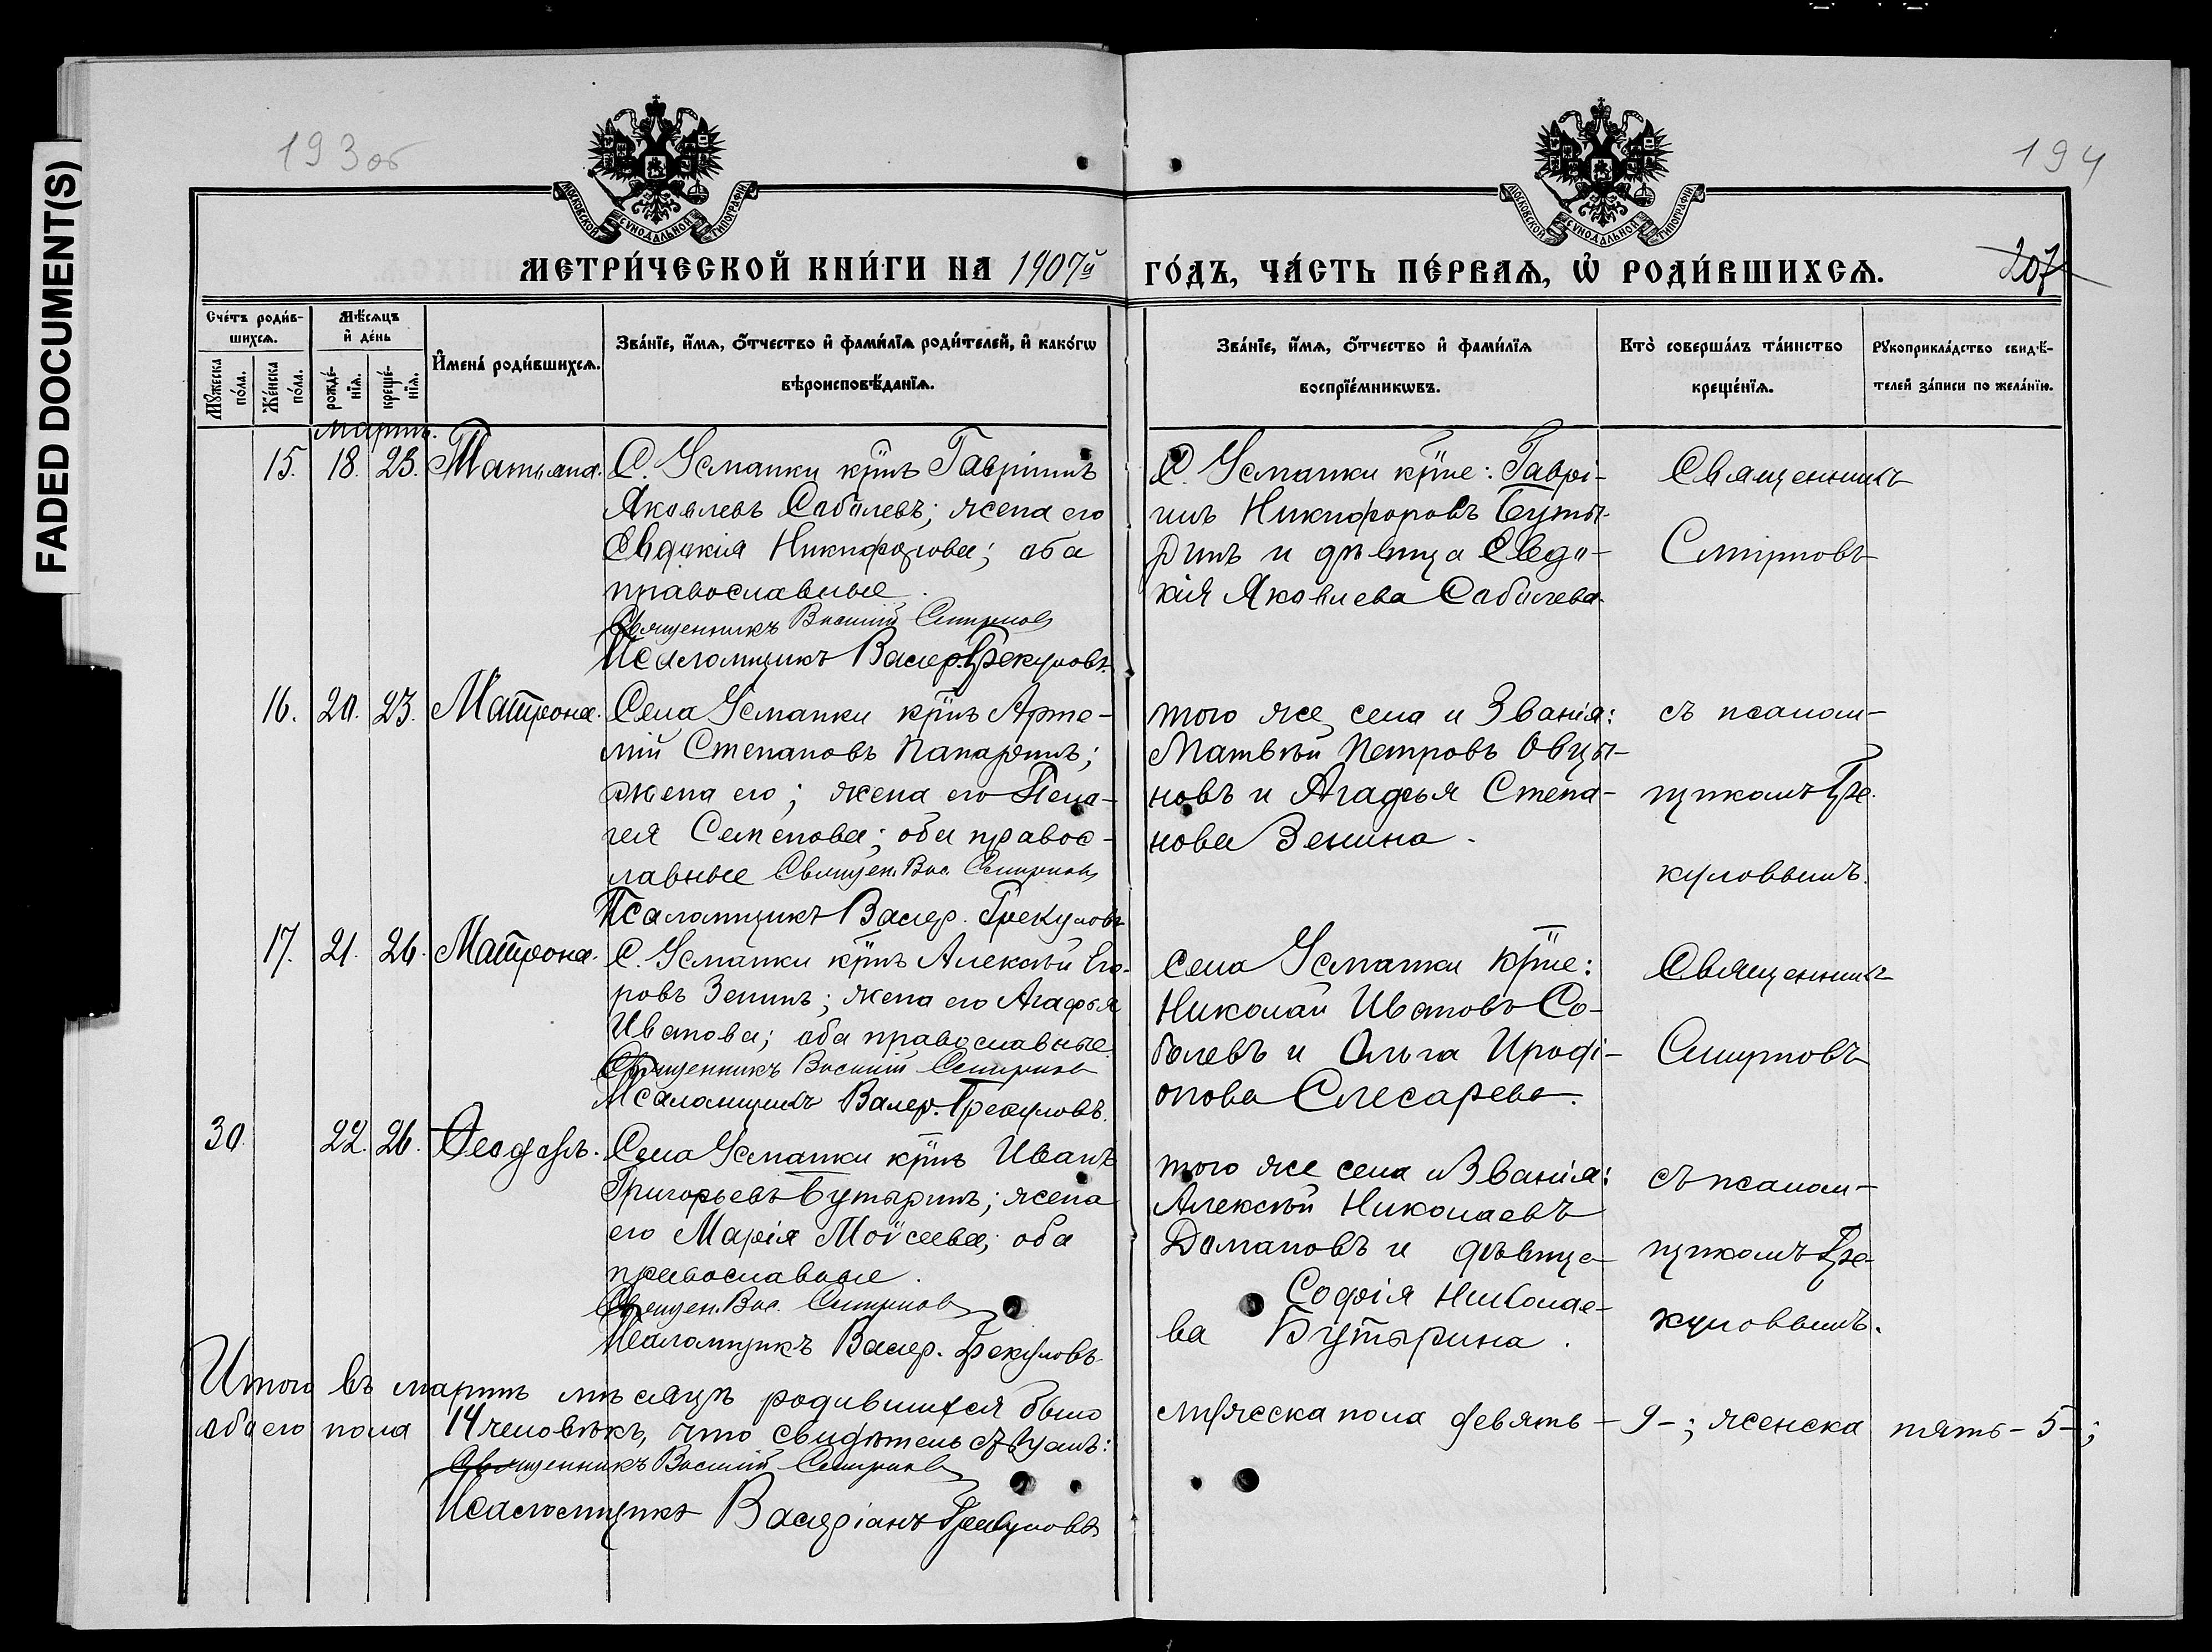 FADED DOCUMENT(S)
193об
194
МОСКОВСКОЙ СѴНОДАЛЬНОЙ ТИПОГРАФІИ
МОСКОВСКОЙ СѴНОДАЛЬНОЙ ТИПОГРАФІИ
МЕТРИ́ЧЕСКОЙ КНИ́ГИ НА 1907й
ГО́ДЪ, ЧА́СТЬ ПЕ́РВАѦ, Ѡ҆ РОДИ́ВШИХСѦ.
207
Сче́тъ роди́в-
шихсѧ.
Мꙋ́жеска по́ла.
Же́нска по́ла.
Мѣ́сѧцъ
и҆ де́нь
рожде́-
нїѧ.
креще́-
нїѧ.
И҆мена̀ роди́вшихсѧ.
Зва́нїе, и҆́мѧ, ѻ҆́тчество и҆ фами́лїѧ роди́телей, и҆ како́гѡ
вѣроисповѣ́данїѧ.
Зва́нїе, и҆́мѧ, ѻ҆́тчество и҆ фами́лїѧ
воспрїе́мникѡвъ.
Кто̀ соверша́лъ та́инство
креще́нїѧ.
Рꙋкоприкла́дство свидѣ́-
телей за́писи по жела́нїю.
Мартъ.
15. 18. 23. Татьяна. С. Усманки крїнъ Гавріилъ
Яковлевъ Соболевъ; жена его
Евдокія Никифорова; оба
православные.
Священникъ Василій Смирновъ
Псаломщикъ Валер. Грекуловъ.
С. Усманки крїне: Гаврі-
илъ Никифоровъ Буты-
ринъ и дѣвица Евдо-
кія Яковлева Соболева.
Священникъ
Смирновъ
16. 20. 23. Матрона. Села Усманки крїнъ Арте-
мій Степановъ Папаринъ;
жена его; жена его Пела-
гея Семенова; оба правос-
лавные Священ. Вас. Смирновъ
Псаломщикъ Валер. Грекуловъ
того же села и Званія:
Матвѣй Петровъ Овцы-
новъ и Агафья Степа-
нова Зенина.
съ псалом-
щикомъ Гре-
куловымъ.
17. 21. 26. Матрона. С. Усманки крїнъ Алексѣй Его-
ровъ Зенинъ; жена его Агафья
Иванова; оба православные.
Священникъ Василій Смирновъ
Псаломщикъ Валер. Грекуловъ.
Села Усманки крїне:
Николай Ивановъ Со-
болевъ и Ольга Ироді-
онова Слесарева.
Священникъ
Смирновъ
30. 22. 26. Ѳеодоръ. Села Усманки крїнъ Иванъ
Григорьевъ Бутыринъ; жена
его Марія Моѵсеева; оба
православные.
Священ. Вас. Смирновъ
Псаломщикъ Валер. Грекуловъ
того же села и Званія:
Алексѣй Николаевъ
Домановъ и дѣвица
Софія Николае-
ва Бутырина.
съ псалом-
щикомъ Гре-
куловымъ.
Итого въ мартѣ мѣсяцѣ родившихся было
обоего пола 14 человѣкъ, что свидѣтельствуемъ:
мужеска пола девять - 9 -; женска пять - 5 -;
Священникъ Василій Смирновъ
Псаломщикъ Валеріанъ Грекуловъ